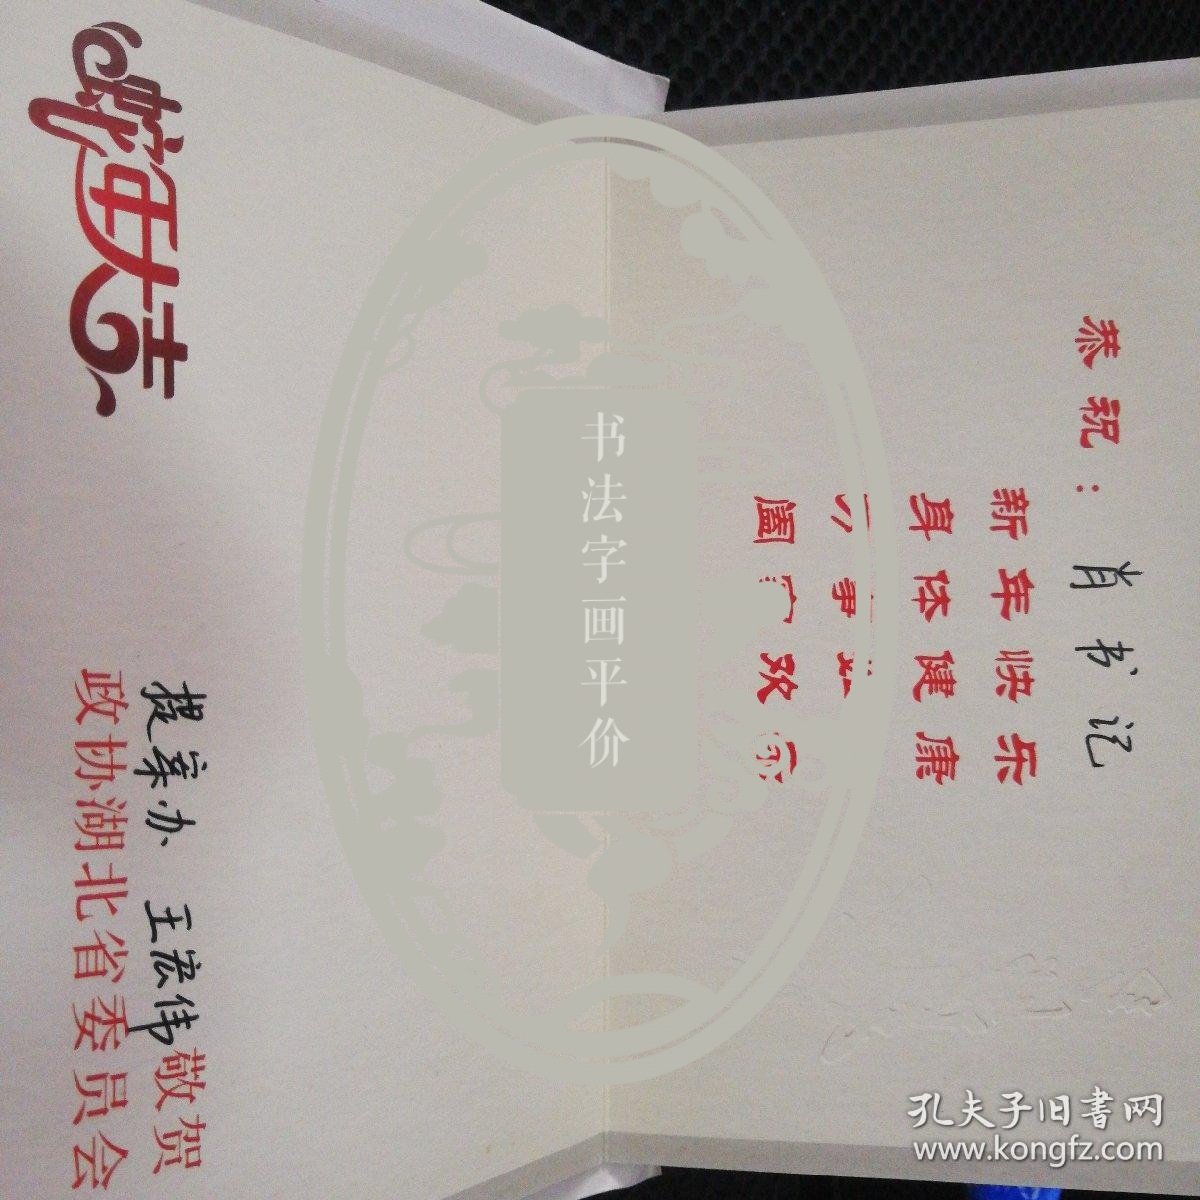 蛇年大吉
恭祝：肖书记
新年快乐
身体健康
阖 欢
提案办 王宏伟 敬贺
政协湖北省委员会
书法字画平价
孔夫子旧书网
www.kongfz.com